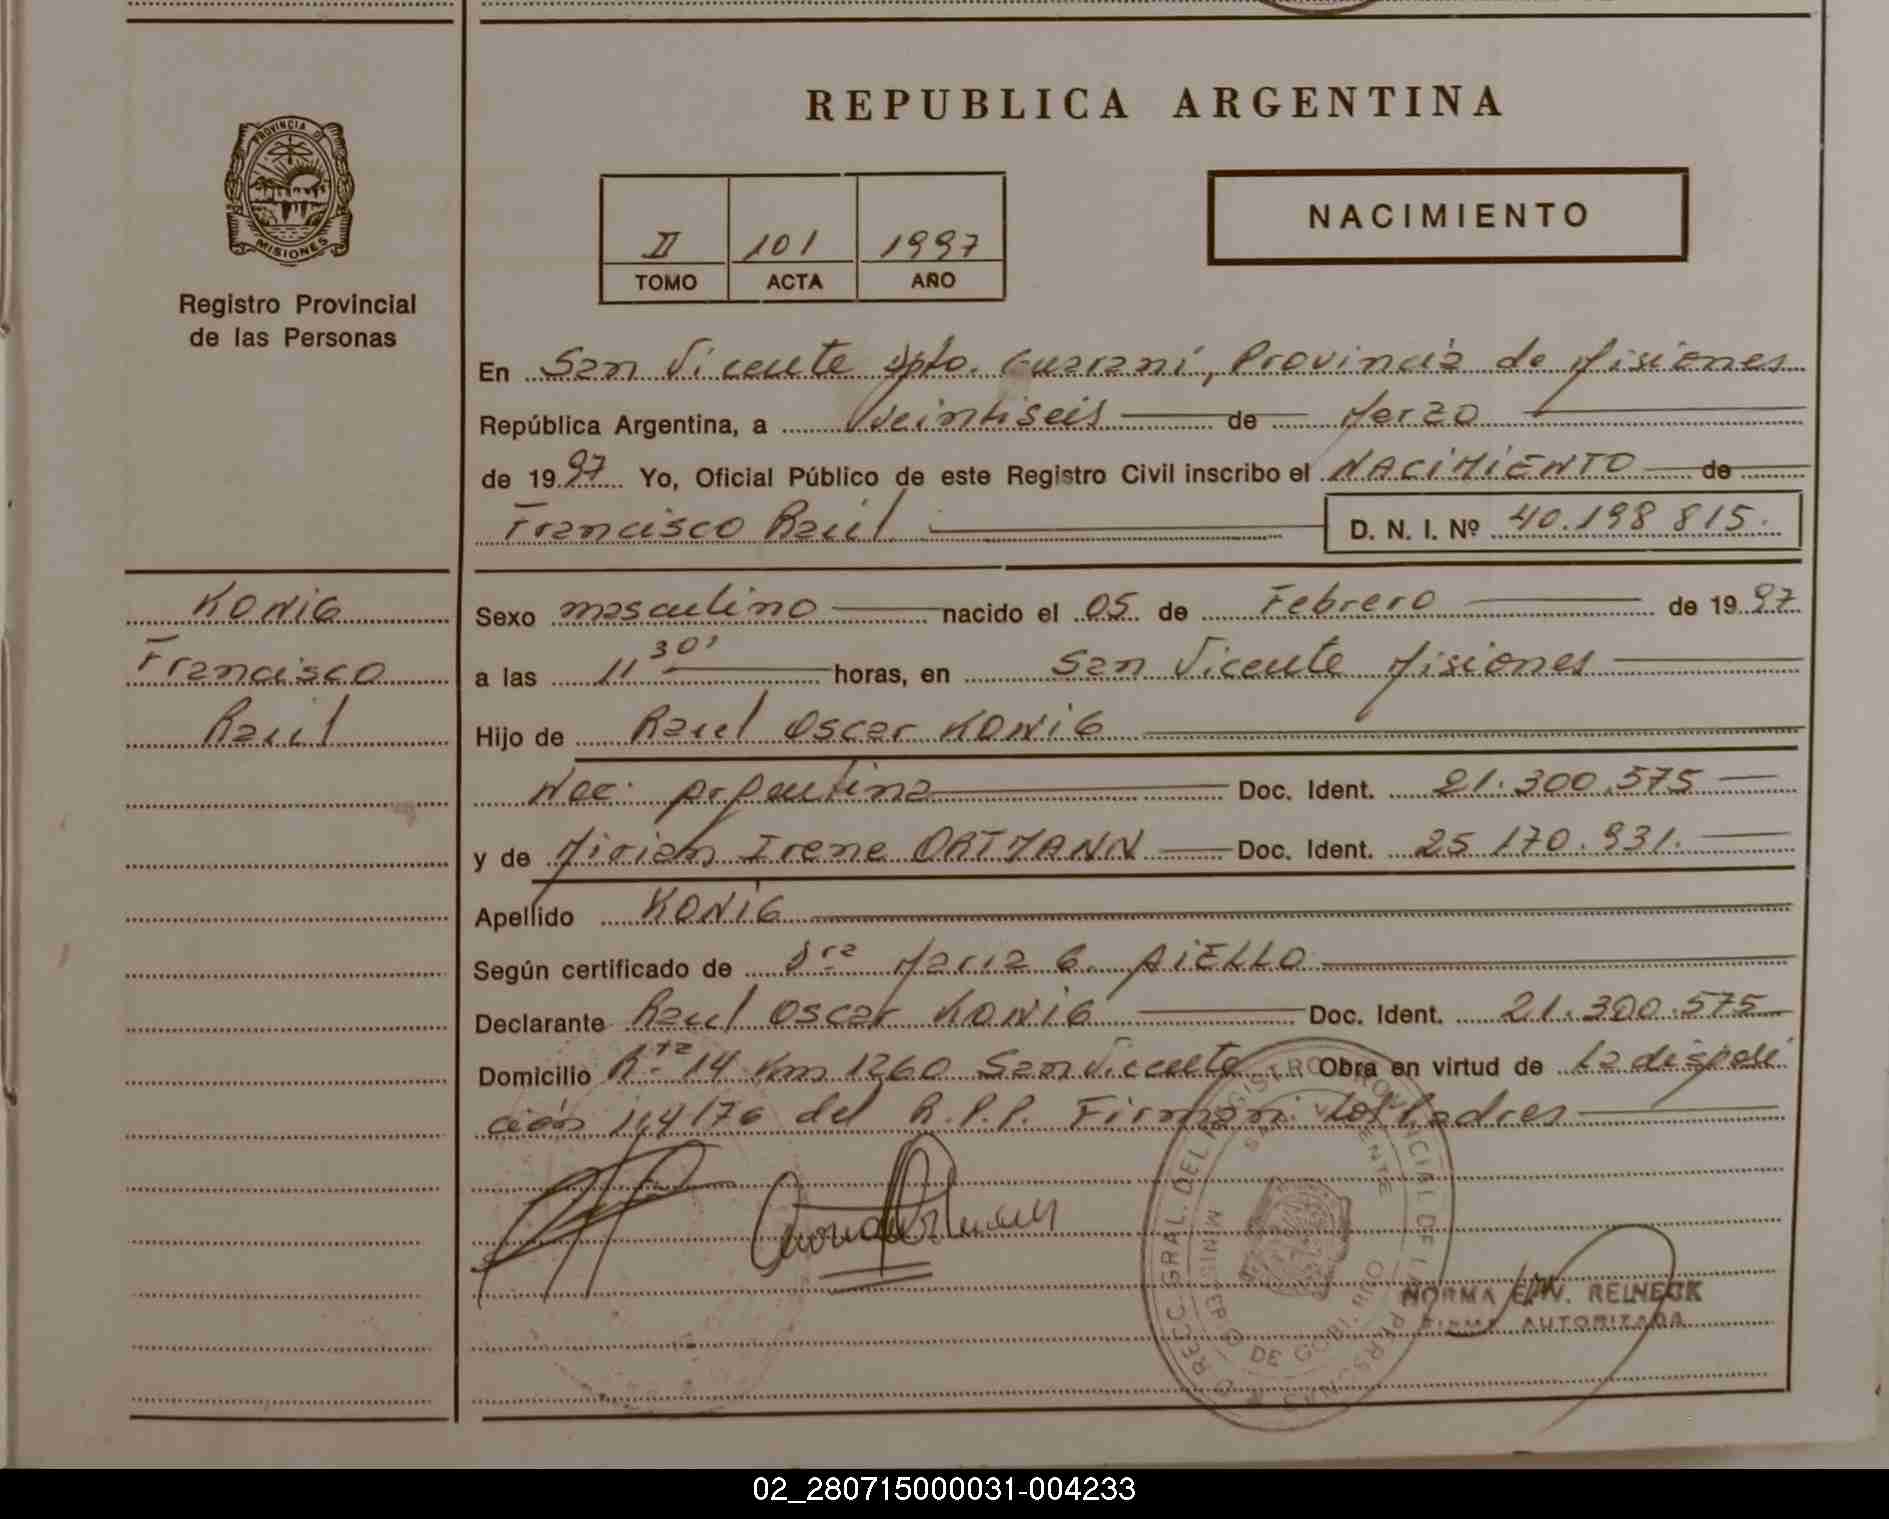 REPUBLICA ARGENTINA
PROVINCIA D
MISIONES
Registro Provincial
de las Personas
II 101 1997
TOMO ACTA AÑO
NACIMIENTO
En San Vicente Dpto. Guaraní, Provincia de Misiones
República Argentina, a Veintiseis de Marzo
de 1997 Yo, Oficial Público de este Registro Civil inscribo el NACIMIENTO de
Francisco Raúl D. N. I. Nº 40.198 815.
KONIG
Francisco
Raúl
Sexo masculino nacido el 05 de Febrero de 1997
a las 11 30' horas, en San Vicente Misiones
Hijo de Raul Oscar KONIG
Nac. Argentina Doc. Ident. 21.300.575
y de Mirian Irene ORTMANN Doc. Ident. 25 170.931.
Apellido KONIG
Según certificado de Dra Maria G. AIELLO
Declarante Raul Oscar KONIG Doc. Ident. 21.300.575
Domicilio Rta 14 Km 1260 San Vicente Obra en virtud de La disposi
ción 114/76 del R.P.P. Firman los Padres
REGISTRO PROVINCIAL DE LAS PERSONAS
SAN VICENTE
MINISTERIO DE GOBIERNO
NORMA REINECK
FIRMA AUTORIZADA
02_280715000031-004233